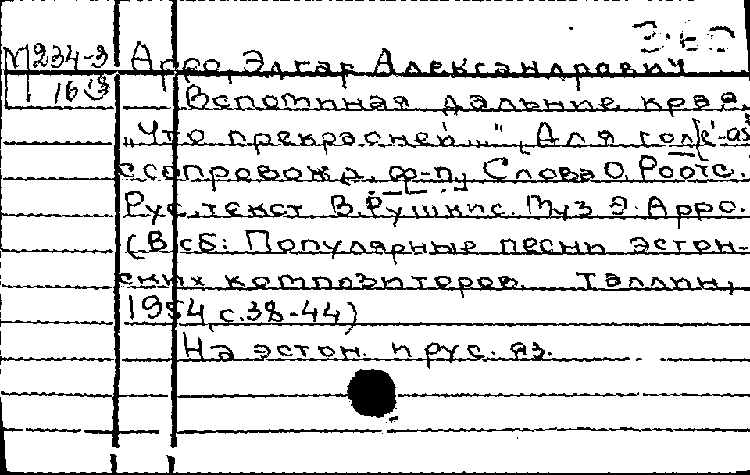 М234-3 Арро, Эдгар Александрович
16/3 Вспоминая дальние края.
„Что прекрасней...", Для гол[е-аз
ссопровожд. ф-п. Слова О. Роотс.
Рус. текст В. Рушкис. Муз Э. Арро.
(В сб: Популярные песни эстон-
ских композиторов. Таллин,
1954, с.38-44)
На эстон. и рус. яз.